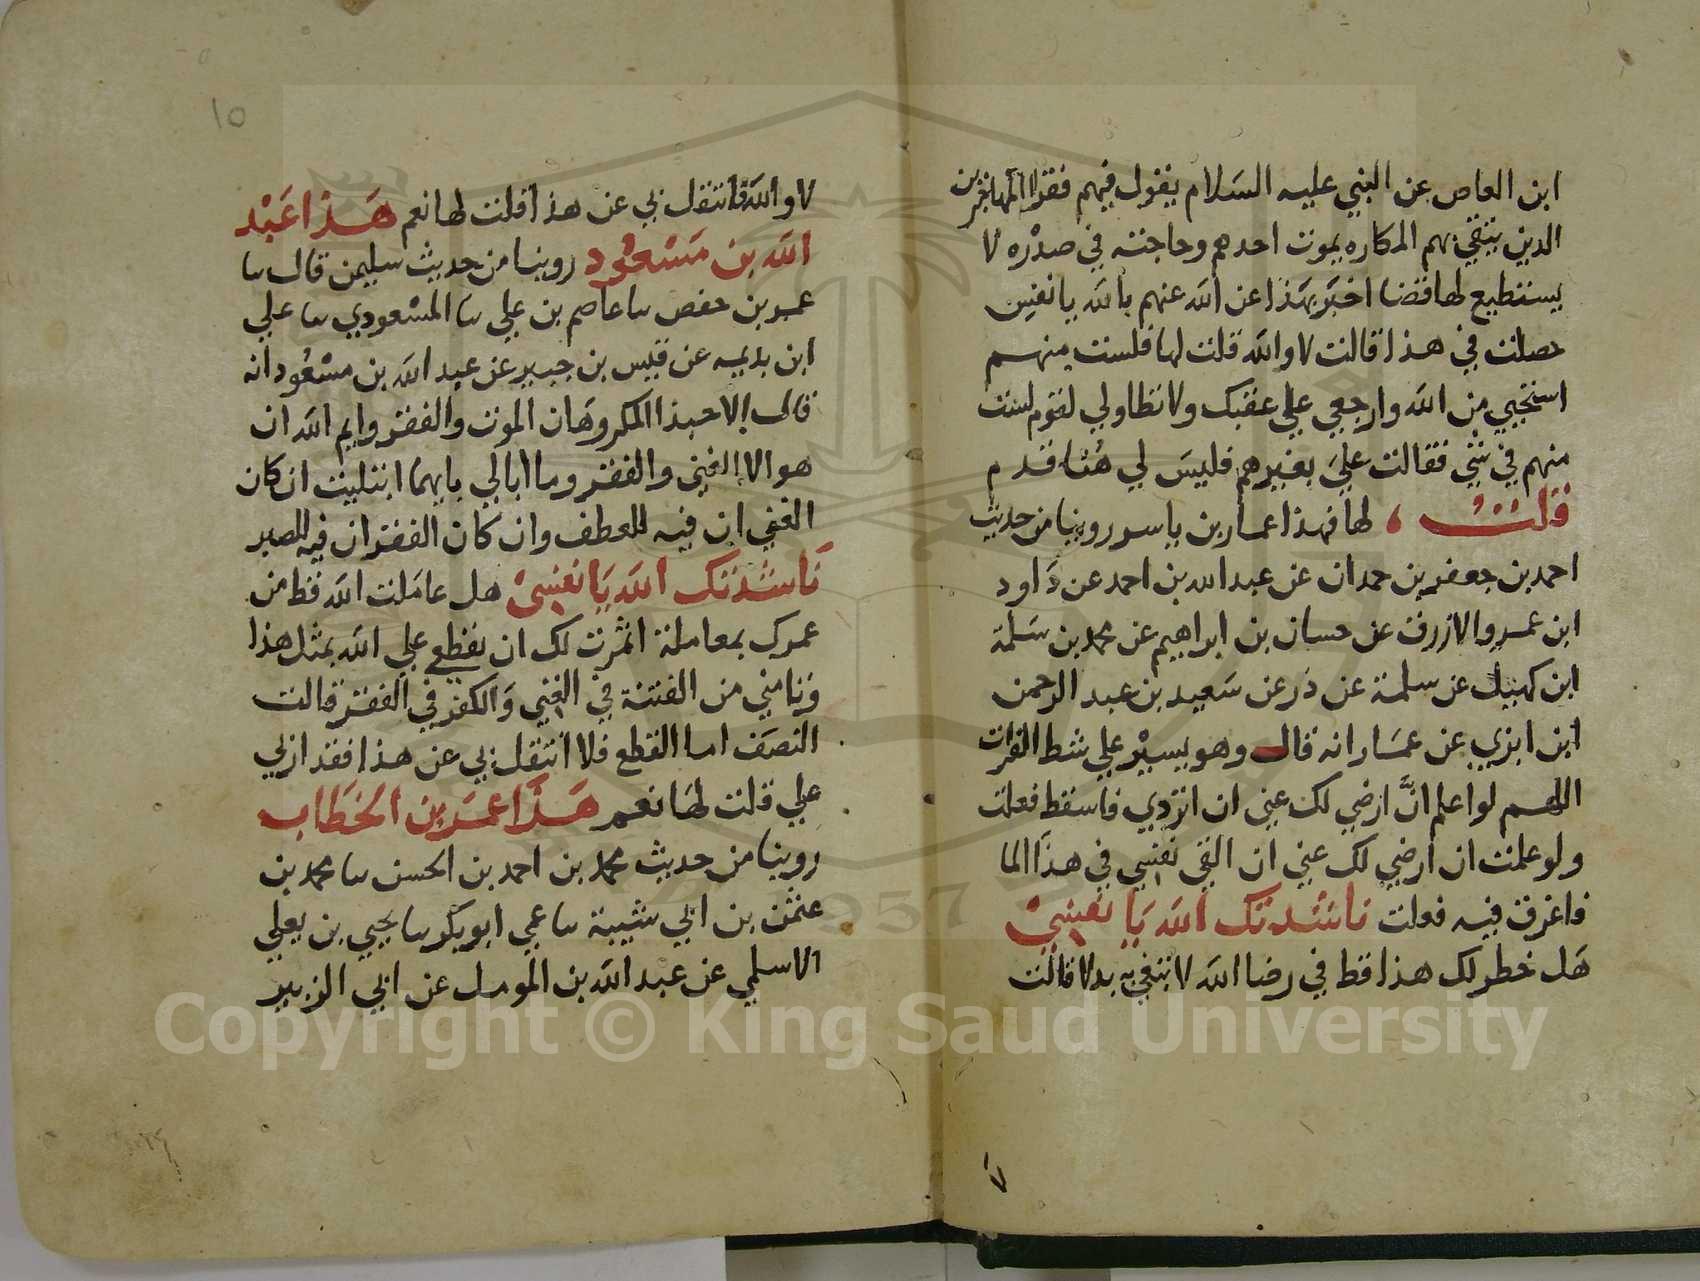 ابن العاص عن النبي عليه السلام يقول فيهم فقرا المهاجرين
الدين يتقي بهم المكاره يموت احدهم وحاجته في صدره لا
يستطيع لها قضا اخبر بهذا عن الله عنهم بالله يا نفس
حصلت في هذا قالت لا والله قلت لها فلست منهم
استحيي من الله وارجعي علي عقبك ولا تطاولي لقوم لست
منهم في شي فقالت علي بغيرهم فليس لي هنا قدم
قلت لها فهذا عمار بن ياسر روينا من حديث
احمد بن جعفر بن حمدان عن عبد الله بن احمد عن داود
ابن عمرو الازرق عن حسان بن ابراهيم عن محمد بن سلمة
ابن كهيل عن سلمة عن ذر عن سعيد بن عبد الرحمن
ابن ابزي عن عمار انه قال وهو يسير علي شط الفرات
اللهم لو اعلم ان ارضي لك عني ان اتردي فاسقط فعلت
ولو علمت ان ارضي لك عني ان القي نفسي في هذا الما
فاغرق فيه فعلت ناشدتك الله يا نفسي
هل خطر لك هذا قط في رضا الله لا تبغي به بدلا قالت
لا
١٥
لا والله فانتقل بي عن هذا قلت لها نعم هذا عبد
الله بن مسعود روينا من حديث سليمن قال سا
عمر بن حفص سا عاصم بن علي سا المسعودي سا علي
ابن بذيمه عن قيس بن جبير عن عبد الله بن مسعود انه
قال الا حبذا المكروهان الموت والفقر وايم الله ان
هو الا الغني والفقر وما ابالي بايهما ابتليت ان كان
الغني ان فيه للعطف وان كان الفقر ان فيه للصبر
ناشدتك الله يا نفسي هل عاملت الله قط من
عمرك بمعاملة اثمرت لك ان تقطع علي الله بمثل هذا
وتامني من الفتنة في الغني والكفر في الفقر قالت
النصف اما القطع فلا انتقل بي عن هذا فقد ازري
علي قلت لها نعم هذا عمر بن الخطاب
روينا من حديث محمد بن احمد بن الحسن سا محمد بن
عثمن بن ابي شيبة سا عمي ابو بكر سا يحيي بن يعلي
الاسلمي عن عبد الله بن المومل عن ابي الزبير
1957
Copyright © King Saud University